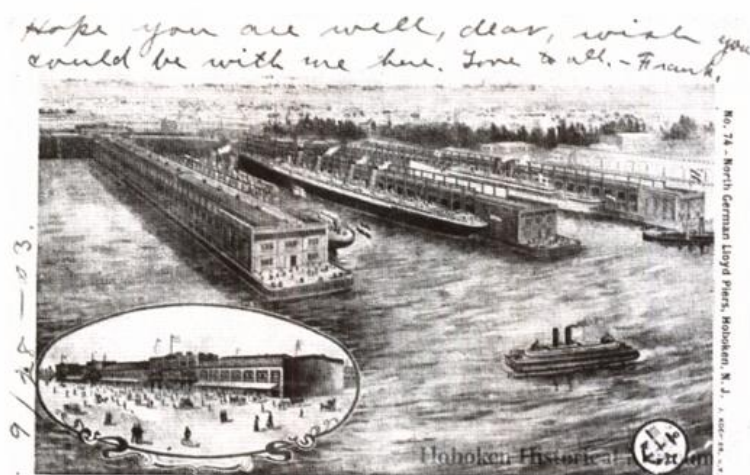 Hope you are well, dear, wish you
could be with me here. Love to all. - Frank.
No. 74 - North German Lloyd Piers, Hoboken, N. J.
9/28-03.
Hoboken Historical